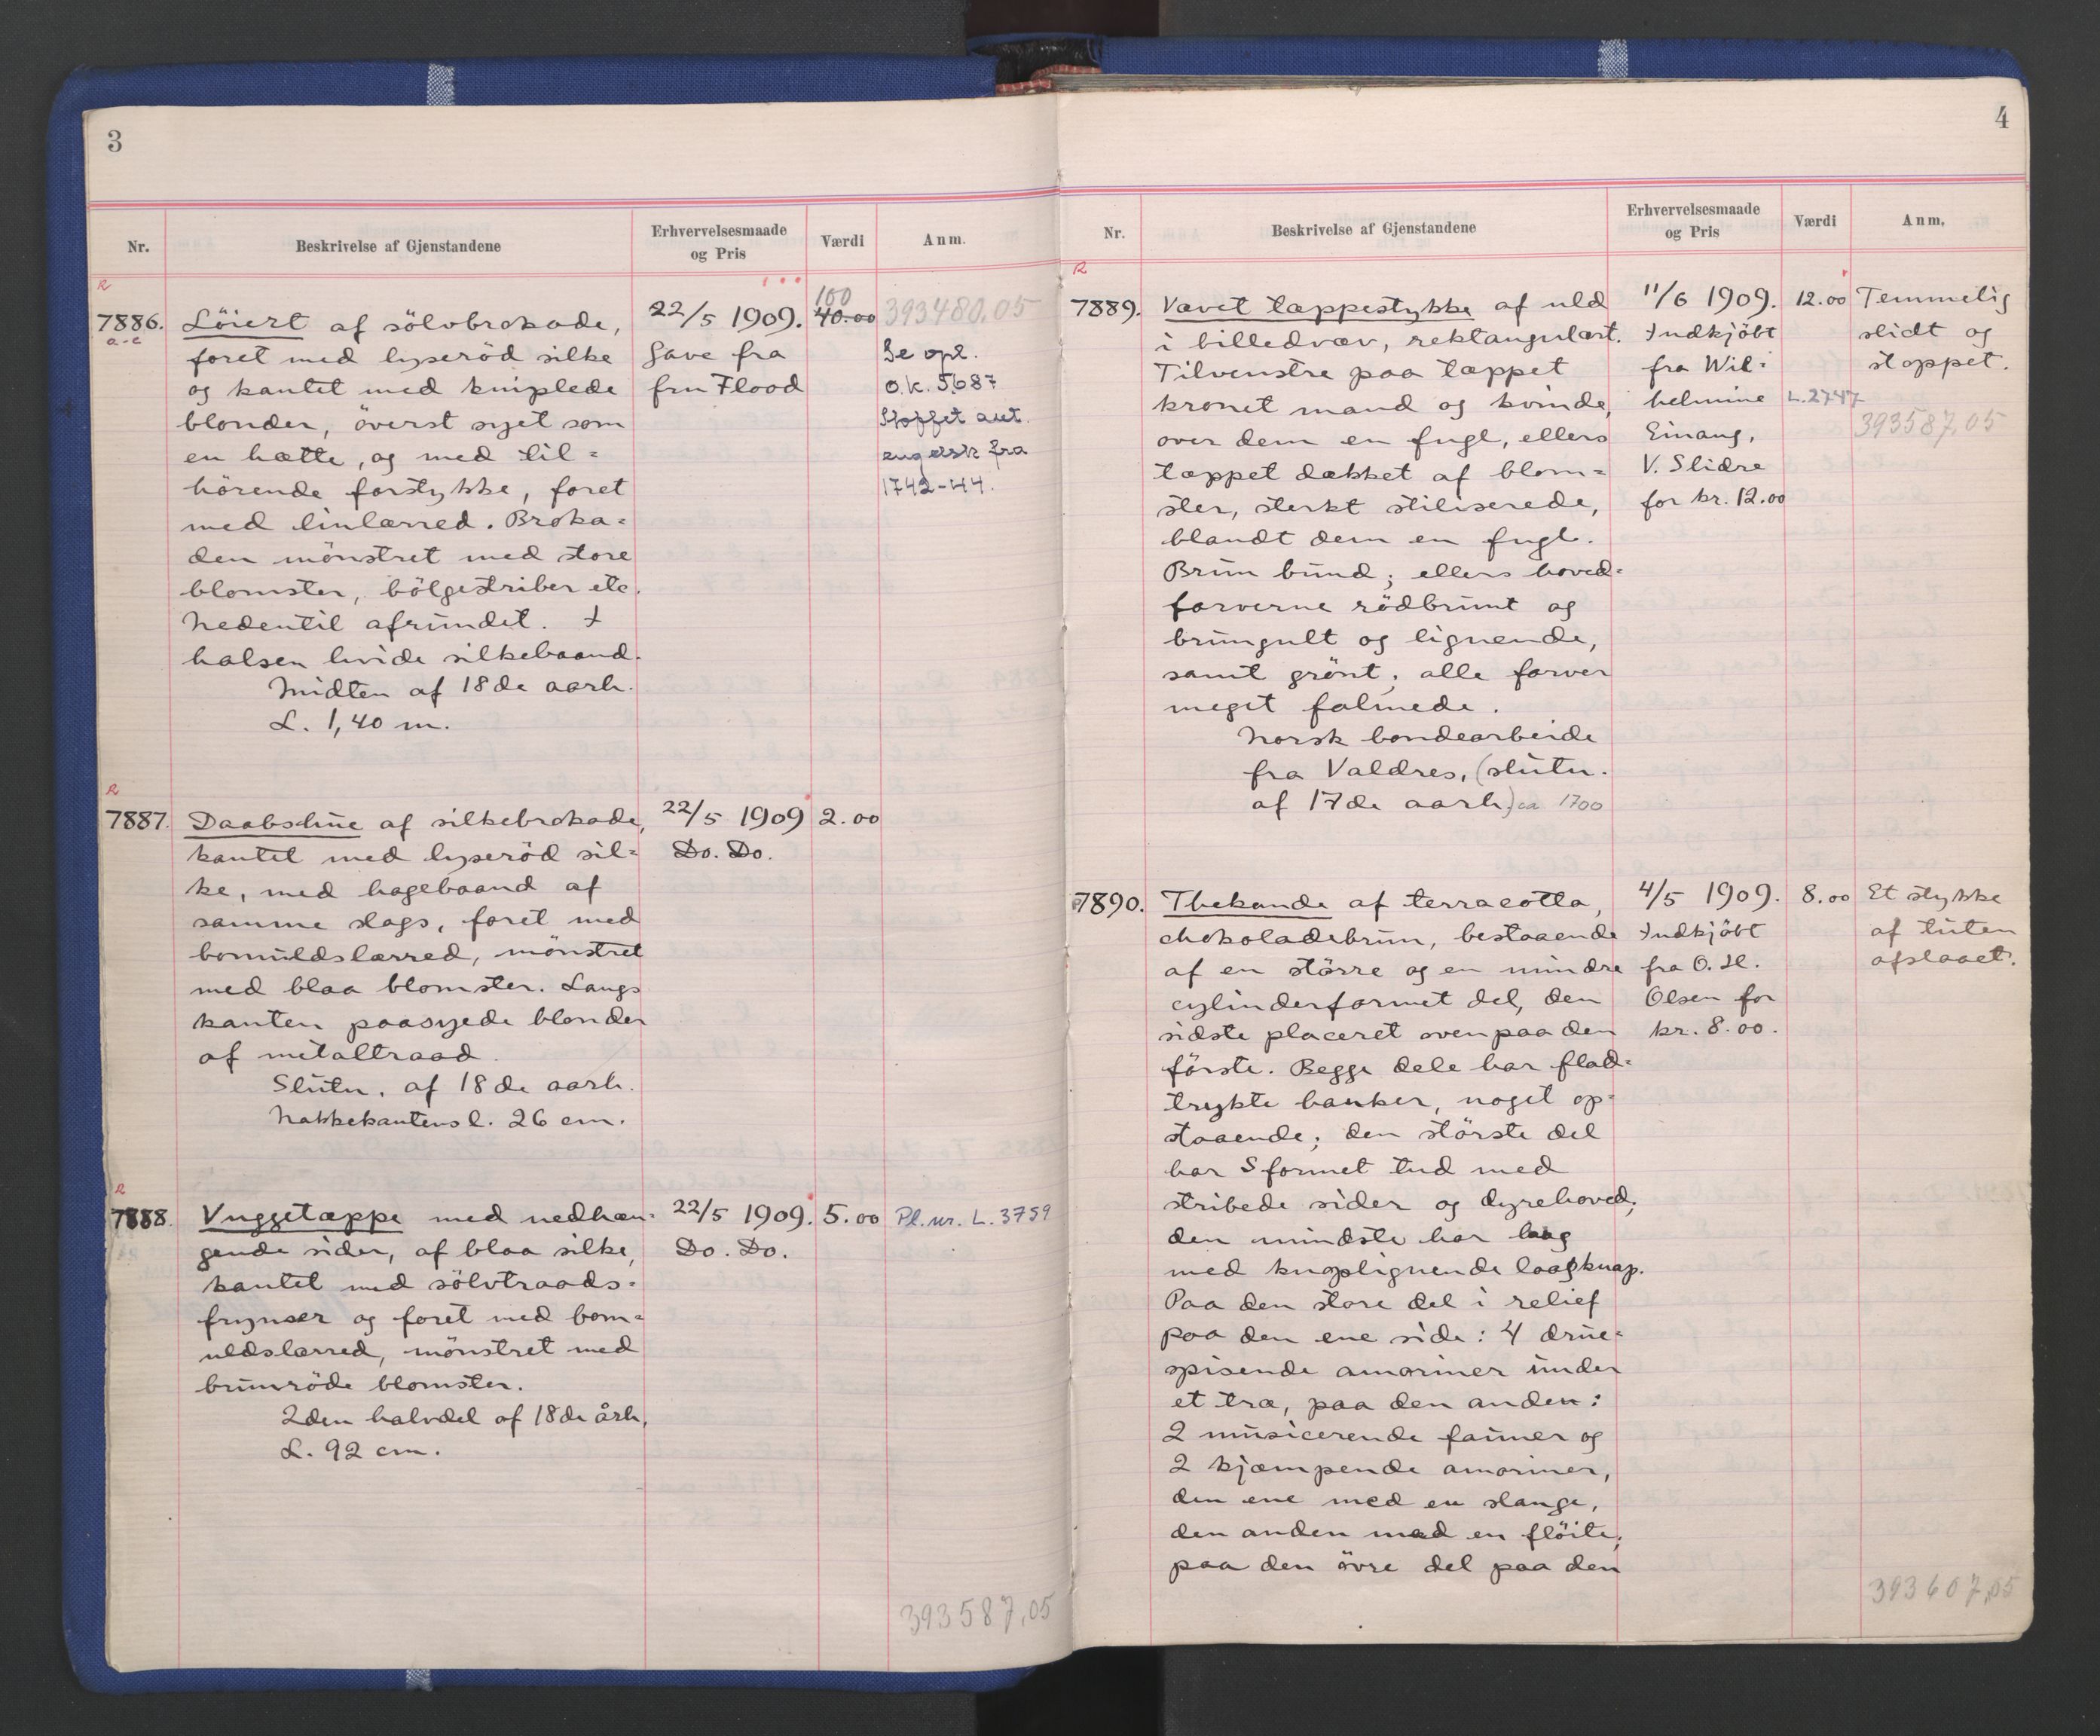 3
Nr.
Beskrivelse af Gjenstandene
Erhvervelsesmaade
og Pris
Værdi
Anm.
R
7886.
a-c
Löiert af sölvbrokade,
foret med lyseröd silke
og kantet med kniplede
blonder, överst syet som
en hætte, og med til-
hörende forstykke, foret
med linlærred. Broka-
den mönstret med store
blomster, bölgestriber etc.
Nedentil afrundet. I
halsen hvide silkebaand.
Midten af 18de aarh.
L. 1,40 m.
22/5 1909.
Gave fra
fru Flood
100
40.00
393480,05
Se opl.
O.K. 5687
Stoffet ant.
engelsk fra
1742-44.
R
7887.
Daabshue af silkebrokade,
kantet med lyseröd sil-
ke, med hagebaand af
samme slags, foret med
bomuldslærred, mönstret
med blaa blomster. Langs
kanten paasyede blonder
af metaltraad.
Slutn. af 18de aarh.
Nakkekantens l. 26 cm.
22/5 1909
Do. Do.
2.00
R
7888.
Vuggetæppe med nedhæn-
gende sider, af blaa silke,
kantet med sölvtraads-
frynser og foret med bom-
uldslærred, mönstret med
brunröde blomster.
2den halvdel af 18de årh.
L. 92 cm.
22/5 1909.
Do. Do.
5.00
Pl. nr. L. 3759
393587,05
4
Nr.
Beskrivelse af Gjenstandene
Erhvervelsesmaade
og Pris
Værdi
Anm.
R
7889.
Vævet tæppestykke af uld
i billedvæv, rektangulært.
Tilvenstre paa tæppet
kronet mand og kvinde,
over dem en fugl, ellers
tæppet dækket af blom-
ster, sterkt stiliserede,
blandt dem en fugl.
Brun bund; ellers hoved-
farverne rödbrunt og
brungult og lignende,
samt grönt; alle farver
meget falmede.
Norsk bondearbeide
fra Valdres, (slutn.
af 17de aarh.) ca 1700
11/6 1909.
Indkjöbt
fra Wil-
helmine
Einang,
V. Slidre
for kr. 12.00
12.00
L. 2747
Temmelig
slidt og
stoppet.
393587,05
7890.
Thekande af terracotta,
chokoladebrun, bestaaende
af en större og en mindre
cylinderformet del, den
sidste placeret ovenpaa den
förste. Begge dele har flad-
trykte hanker, noget op-
staaende; den störste del
har S formet tud med
stribede sider og dyrehoved;
den mindste har laag
med knoplignende laagknap.
Paa den store del i relief
paa den ene side: 4 drue-
spisende amoriner under
et træ, paa den anden:
2 musicerende fauner og
2 kjæmpende amoriner,
den ene med en slange,
den anden med en flöite;
paa den övre del paa den
4/5 1909.
Indkjöbt
fra O. H.
Olsen for
kr. 8.00.
8.00
Et stykke
af tuten
afslaaet.
393607,05